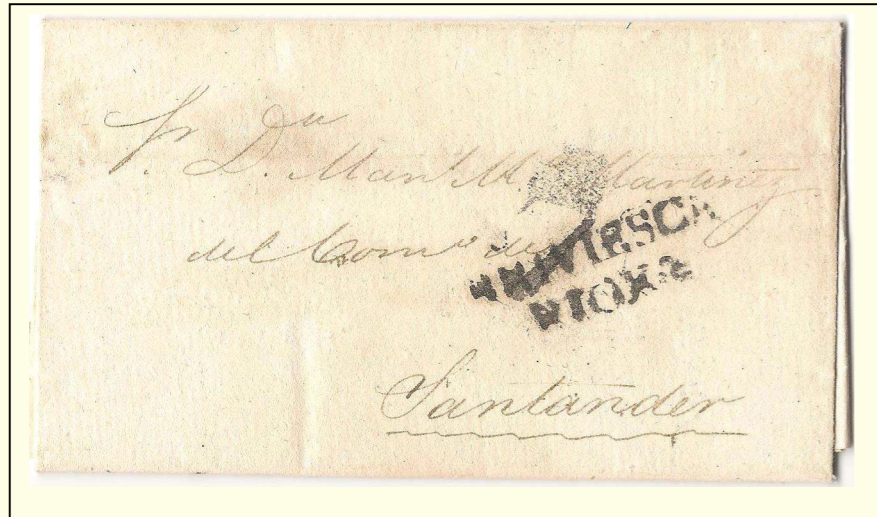 Sr. Dn D. Manl. M. Martinez
del Como. de
BRIVIESCA
RIOXA
Santander